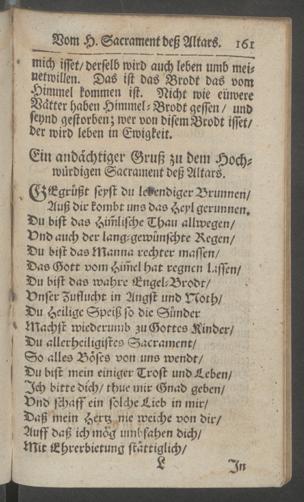 Vom H. Sacrament deß Altars. 161
mich isset/ derselb wird auch leben umb mei-
netwillen. Das ist das Brodt das vom
Himmel kommen ist. Nicht wie eüwere
Vätter haben Himmel-Brodt gessen/ und
seynd gestorben; wer von disem Brodt isset/
der wird leben in Ewigkeit.
Ein andächtiger Gruß zu dem Hoch-
würdigen Sacrament deß Altars.
GEgrüßt seyst du lebendiger Brunnen/
Auß dir kombt uns das Heyl gerunnen.
Du bist das Him̄lische Thau allwegen/
Vnd auch der lang-gewünschte Regen/
Du bist das Manna rechter massen/
Das Gott vom Him̄el hat regnen lassen/
Du bist das wahre Engel-Brodt/
Vnser Zuflucht in Angst und Noth/
Du Heilige Speiß so die Sünder
Machst wiederumb zu Gottes Kinder/
Du allerheiligistes Sacrament/
So alles Böses von uns wendt/
Du bist mein einiger Trost und Leben/
Ich bitte dich/ thue mir Gnad geben/
Vnd schaff ein solche Lieb in mir/
Daß mein Hertz nie weiche von dir/
Auff daß ich mög umbfahen dich/
Mit Ehrerbietung stättiglich/
L In